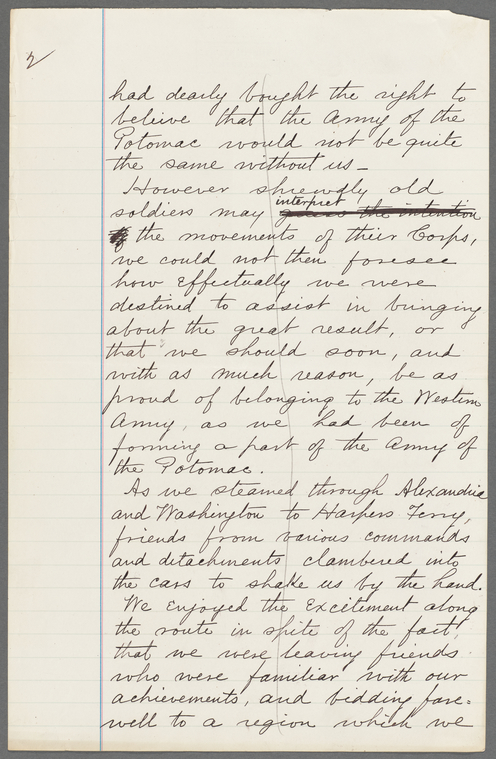 2
had dearly bought the right to
believe that the Army of the
Potomac would not be quite
the same without us_
However shrewdly old
interpret
soldiers may guess the intention
of the movements of their Corps,
we could not then foresee
how Effectually we were
destined to assist in bringing
about the great result, or
that we should soon, and
with as much reason, be as
proud of belonging to the Western
Army, as we had been of
forming a part of the Army of
the Potomac.
As we steamed through Alexandria
and Washington to Harpers Ferry,
friends from various commands
and detachments clambered into
the cars to shake us by the hand.
We Enjoyed the Excitement along
the route in spite of the fact,
that we were leaving friends
who were familiar with our
achievements, and bidding fare=
well to a region which we